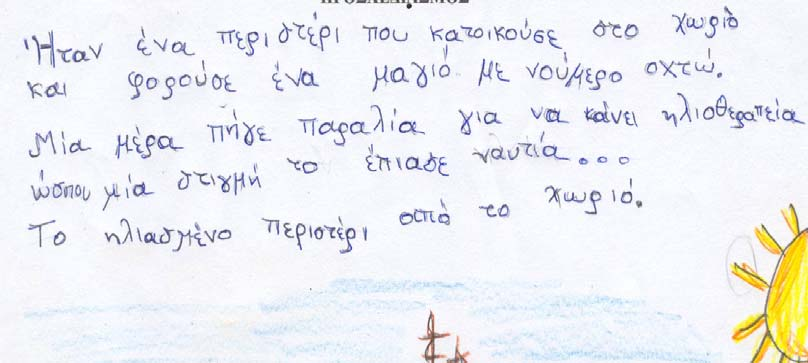 Ήταν ένα περιστέρι που κατοικούσε στο χωριό
και φορούσε ένα μαγιό με νούμερο οχτώ.
Μία μέρα πήγε παραλία για να κάνει ηλιοθεραπεία
ώσπου μία στιγμή το έπιασε ναυτία...
Το ηλιασμένο περιστέρι από το χωριό.